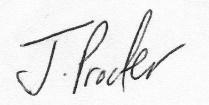 J. Procter